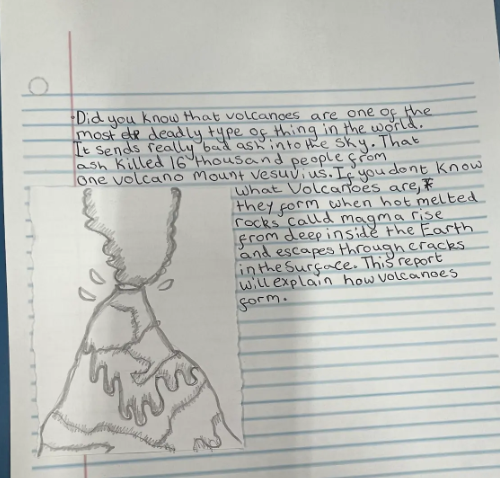 Did you know that volcanoes are one of the
most deadly type of thing in the world.
It sends really bad ash into the sky. That
ash killed 16 thousand people from
one volcano mount vesuvius. If you dont know
what volcanoes are,
they form when hot melted
rocks calld magma rise
from deep inside the Earth
and escapes through cracks
in the surface. This report
will explain how volcanoes
form.